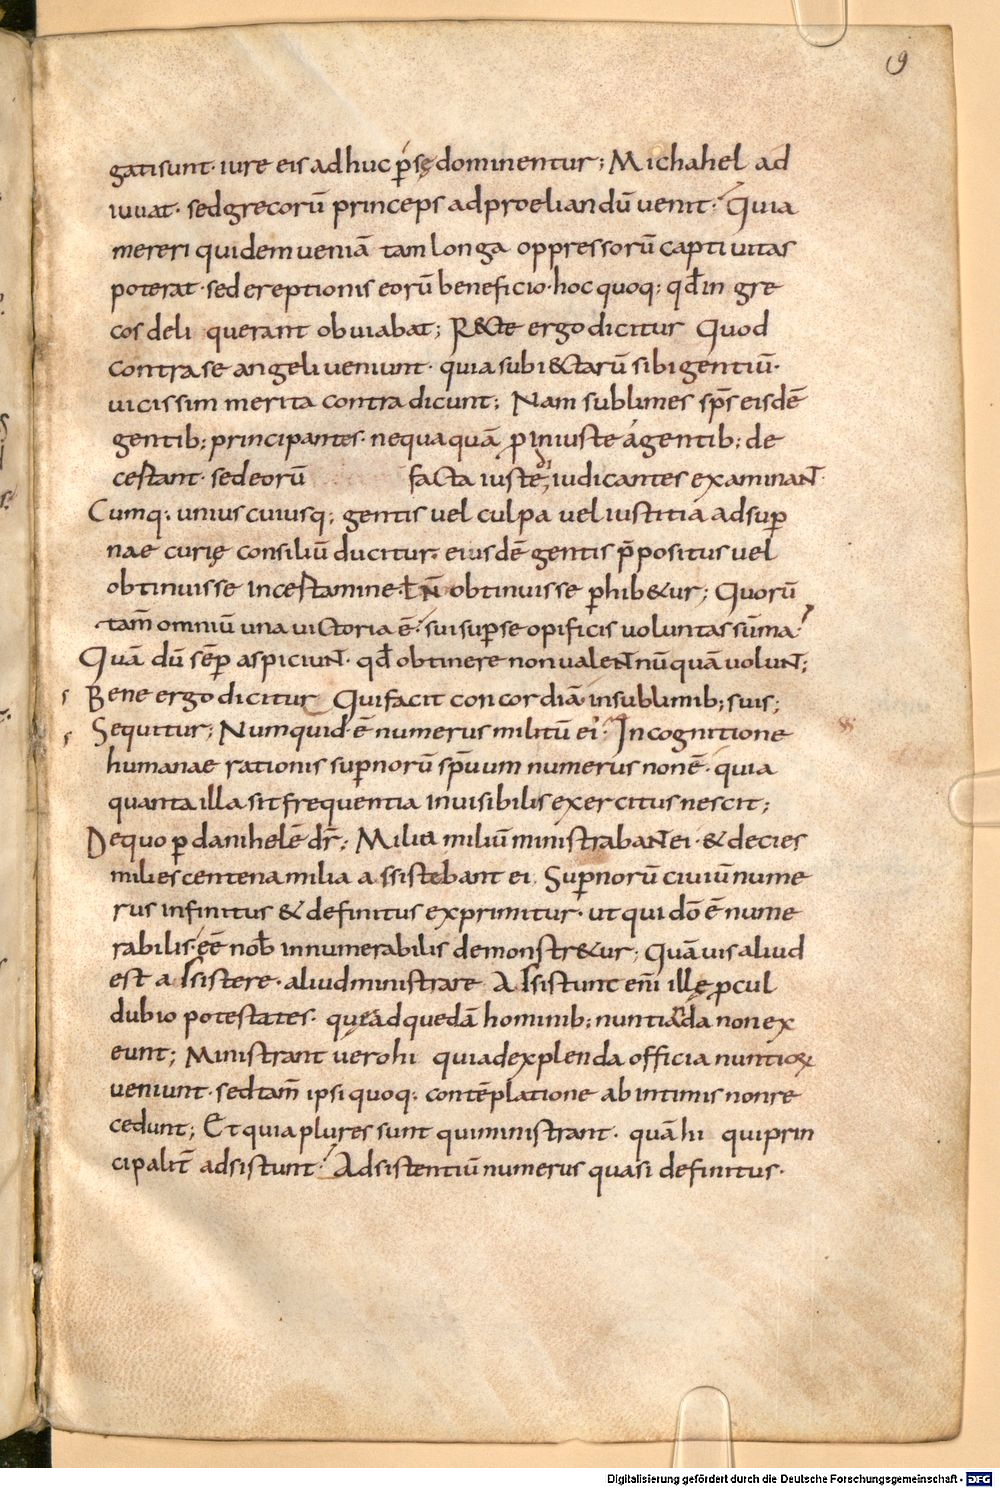 19
gati sunt· iure eis adhuc p̄sę dominentur; Michahel ad
iuuat· sed grecorū princeps ad proeliandū uenit· Quia
mereri quidem ueniā tam longa oppressorū captiuitas
poterat· sed ereptionis eorū beneficio· hoc quoq: qđ in gre
cos deli querant obuiabat; R&cte ergo dicitur Quod
contra se angeli ueniunt· quia subi&ctarū sibi gentiū·
uicissim merita contra dicunt; Nam sublimes sp̄s eisdē
gentib: principantes· nequaquā ꝑ iniuste agentib: de
certant· sed eorū facta iuste iudicantes examinaN̄·
Cumq: unius cuiusq; gentis uel culpa uel iustitia ad suꝑ
nae curię consiliū ducitur· eiusdē gentis p̄positus uel
obtinuisse in certamine· ł n̄ obtinuisse ꝑhib&ur; Quorū
tam̄ omniū una uictoria ē· sui suꝑ se opificis uoluntas sūma·
Quā dū sēꝑ aspiciuN̄· qđ obtinere non ualeN̄ nūquā uoluN̄;
s Bene ergo dicitur Qui facit concordiā in sublimib; suis;
s Sequitur; Numquid ē numerus militū ei· In cognitione
humanae rationis suꝑnorū sp̄uum numerus non ē· quia
quanta illa sit frequentia inuisibilis exercitus nescit;
De quo ꝑ danihelē dr̄; Milia miliū ministrabaN̄ ei· & decies
milies centena milia assistebant ei. Suꝑnorū ciuiū nume
rus infinitus & definitus exprimitur· ut qui dō ē nume
rabilis· eē nob̄ innumerabilis demonstr&ur; Quāuis aliud
est assistere· aliud ministrare Assistunt eni illę ꝓcul
dubio potestates· que ad quedā hominib: nuntianda non ex
eunt; Ministrant uero hi qui ad explenda officia nuntioꝝ
ueniunt· sed tam̄ ipsi quoq: contēplatione ab intimis non re
cedunt; Et quia plures sunt qui ministrant· quā hi qui prin
cipalit̄ adsistunt· Adsistentiū numerus quasi definitus·
Digitalisierung gefördert durch die Deutsche Forschungsgemeinschaft - DFG